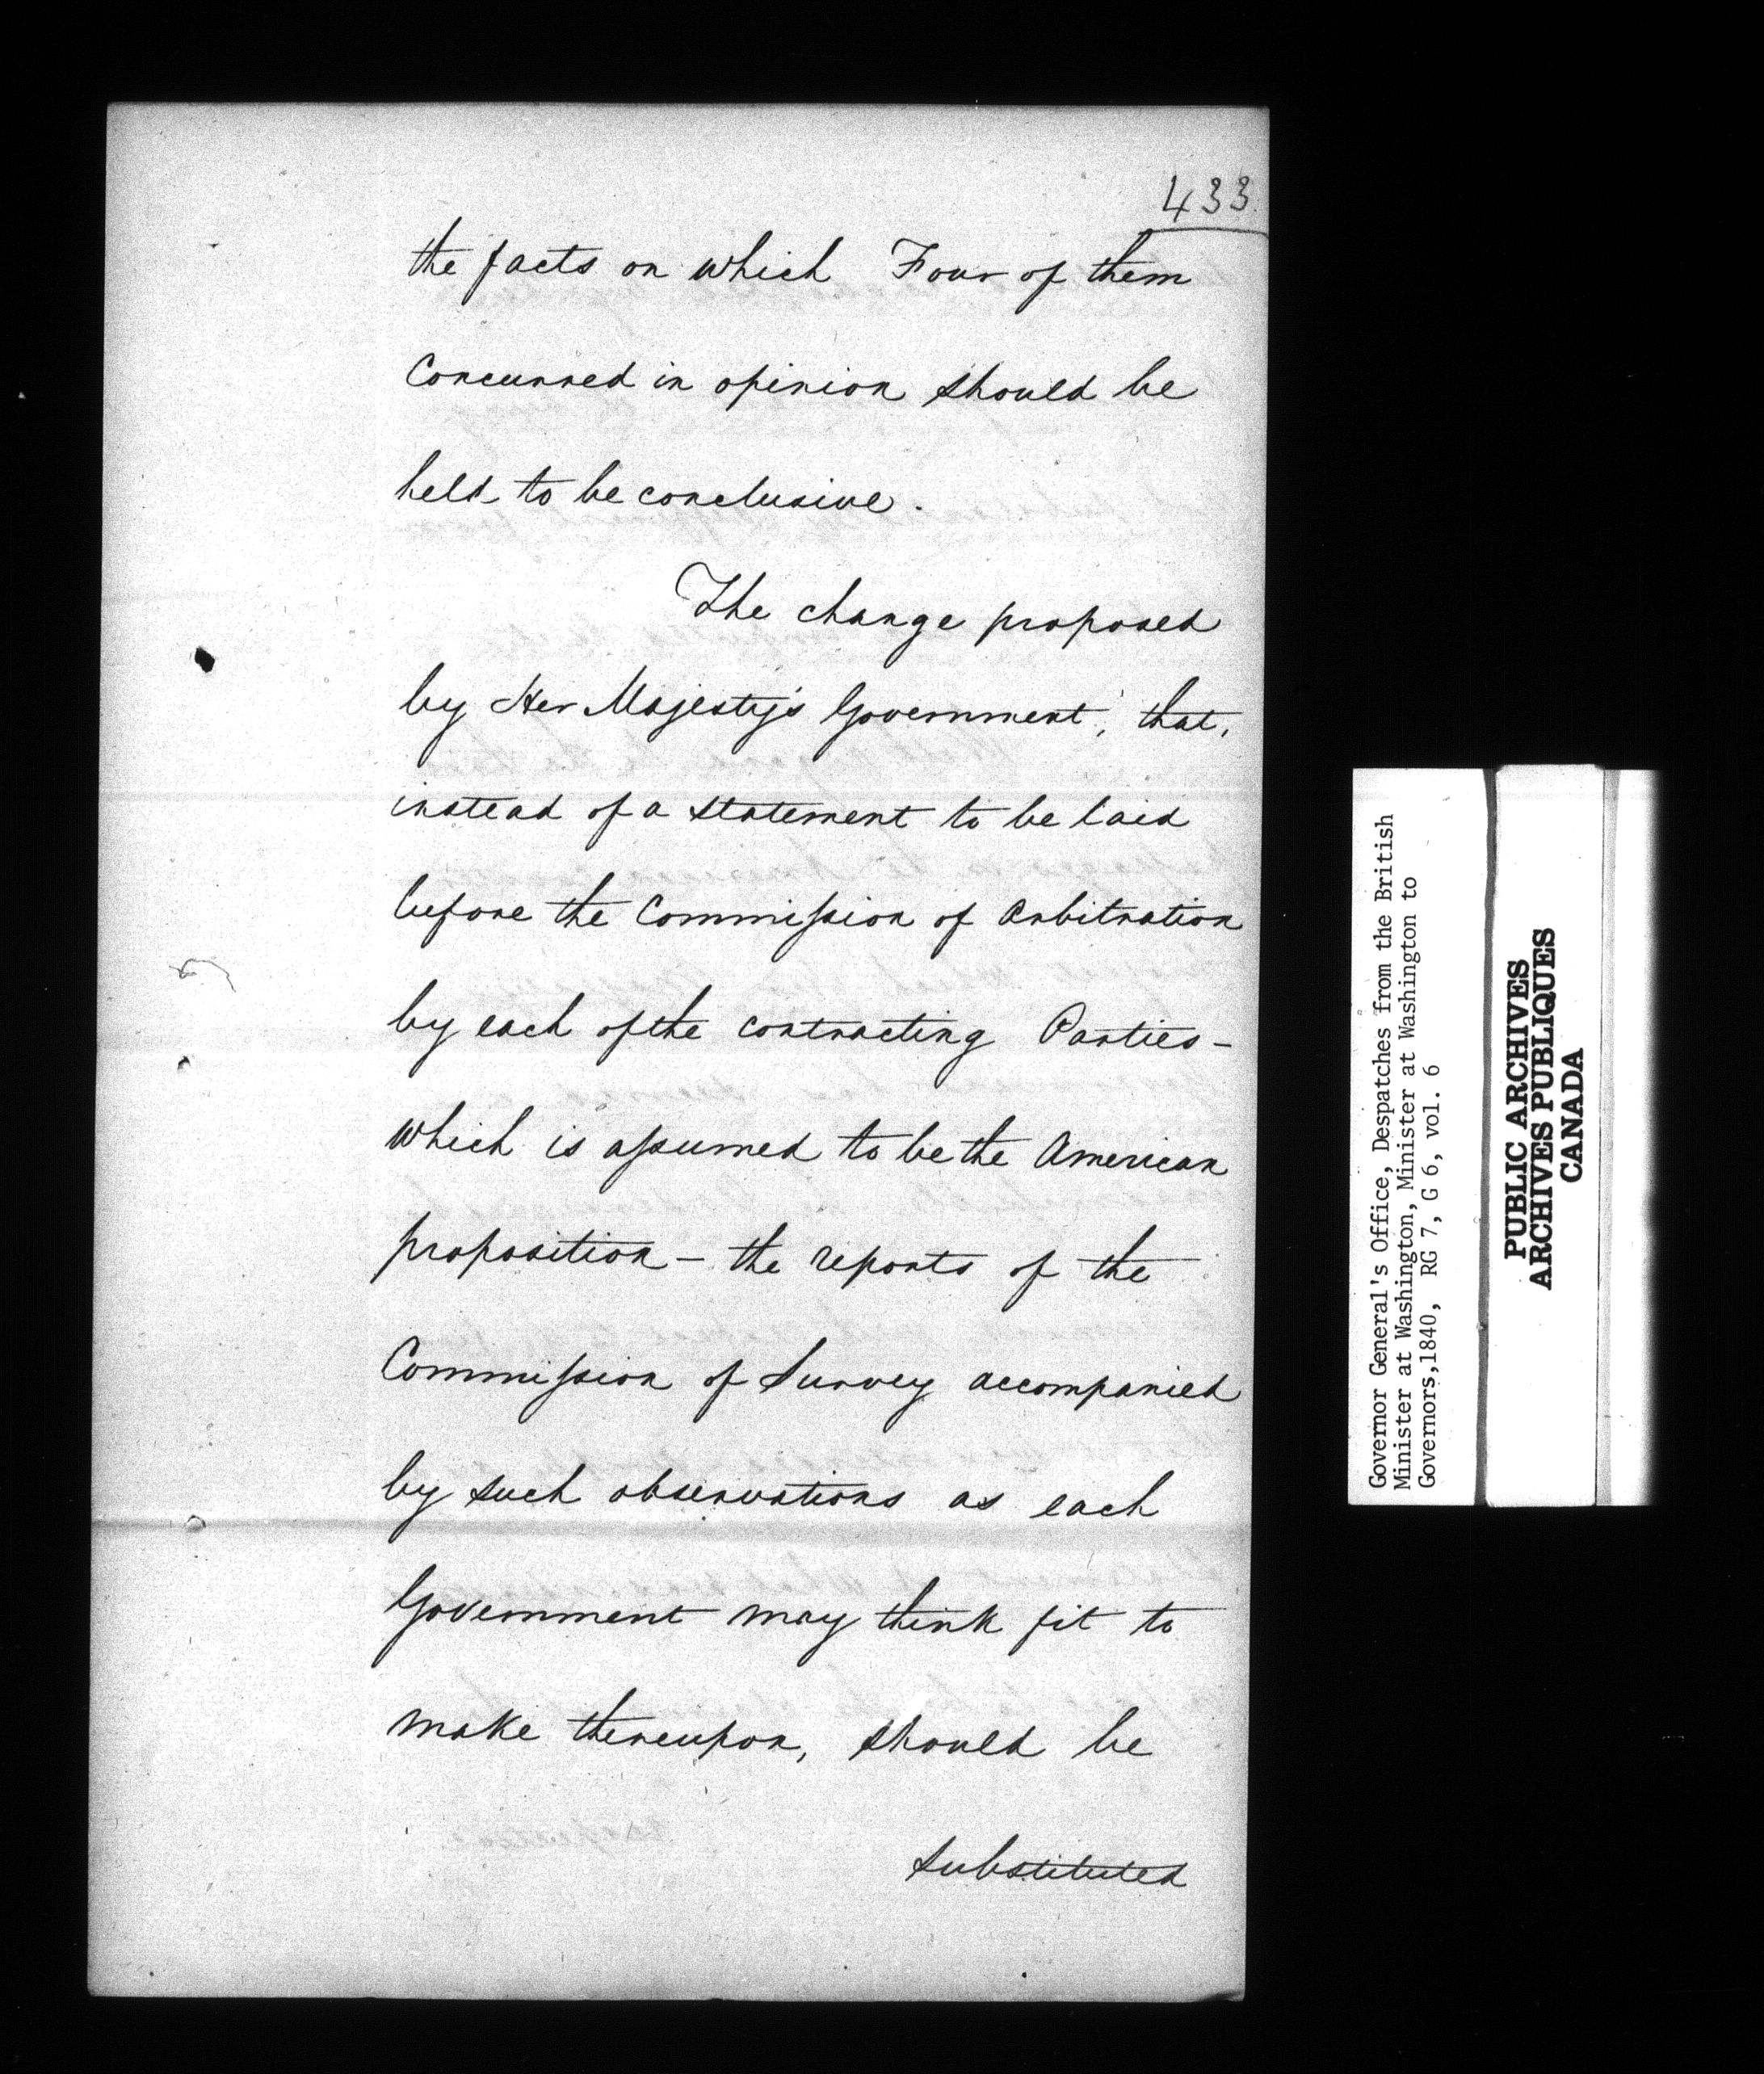 433.
the facts on which Four of them
Concurred in opinion should be
held to be conclusive.
The change proposed
by Her Majesty's Government, that,
instead of a statement to be laid
before the Commission of Arbitration
by each of the contracting Parties -
which is assumed to be the American
proposition - the reports of the
Commission of Survey accompanied
by such observations as each
Government may think fit to
make thereupon, should be
substituted
Governor General's Office, Despatches from the British
Minister at Washington, Minister at Washington to
Governors,1840, RG 7, G 6, vol. 6
PUBLIC ARCHIVES
ARCHIVES PUBLIQUES
CANADA